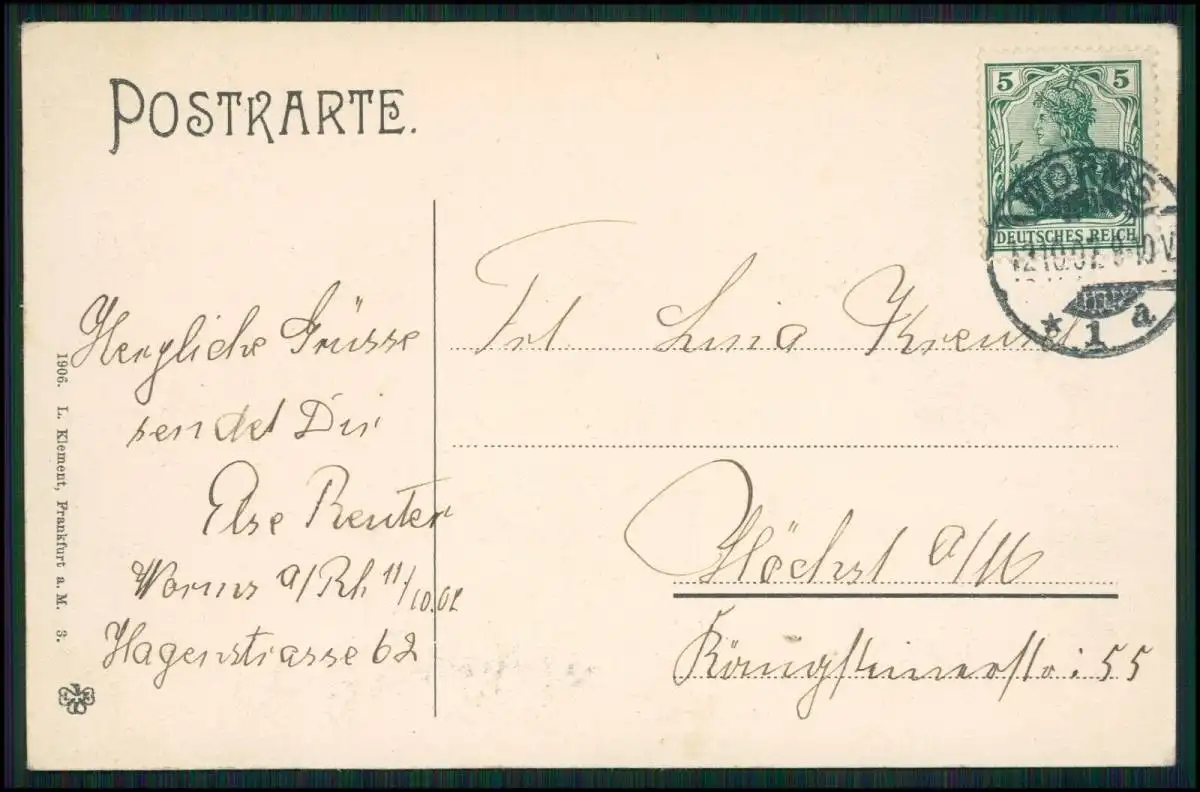 POSTKARTE.
5 5
DEUTSCHES REICH
WORMS
12.10.07. 9-10 V
* 1 a
Herzliche Grüsse
sendet Dir
Else Reuter
Worms a/Rh 11/10.07
Hagenstrasse 62
Frl Lina
Höchst a/M
Königsteinerstr: 55
1906. L. Klement, Frankfurt a. M. 3.